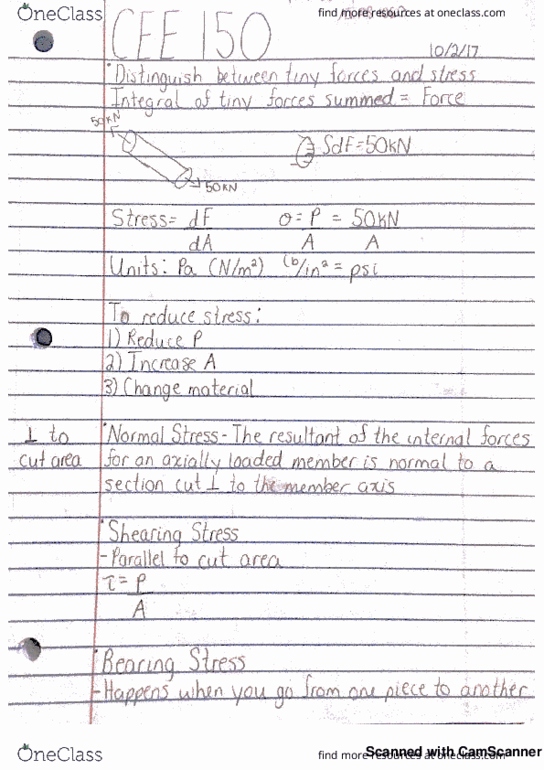 OneClass
find more resources at oneclass.com
CEE 150
10/2/17
Distinguish between tiny forces and stress
Integral of tiny forces summed = Force
50KN
∫dF=50KN
50KN
Stress = dF/dA σ = P/A = 50KN/A
Units: Pa (N/m²) lb/in² = psi
To reduce stress:
1) Reduce P
2) Increase A
3) Change material
⊥ to cut area
Normal Stress - The resultant of the internal forces
for an axially loaded member is normal to a
section cut ⊥ to the member axis
Shearing Stress
- Parallel to cut area
τ = P/A
Bearing Stress
- Happens when you go from one piece to another
OneClass
find more resources at oneclass.com
Scanned with CamScanner